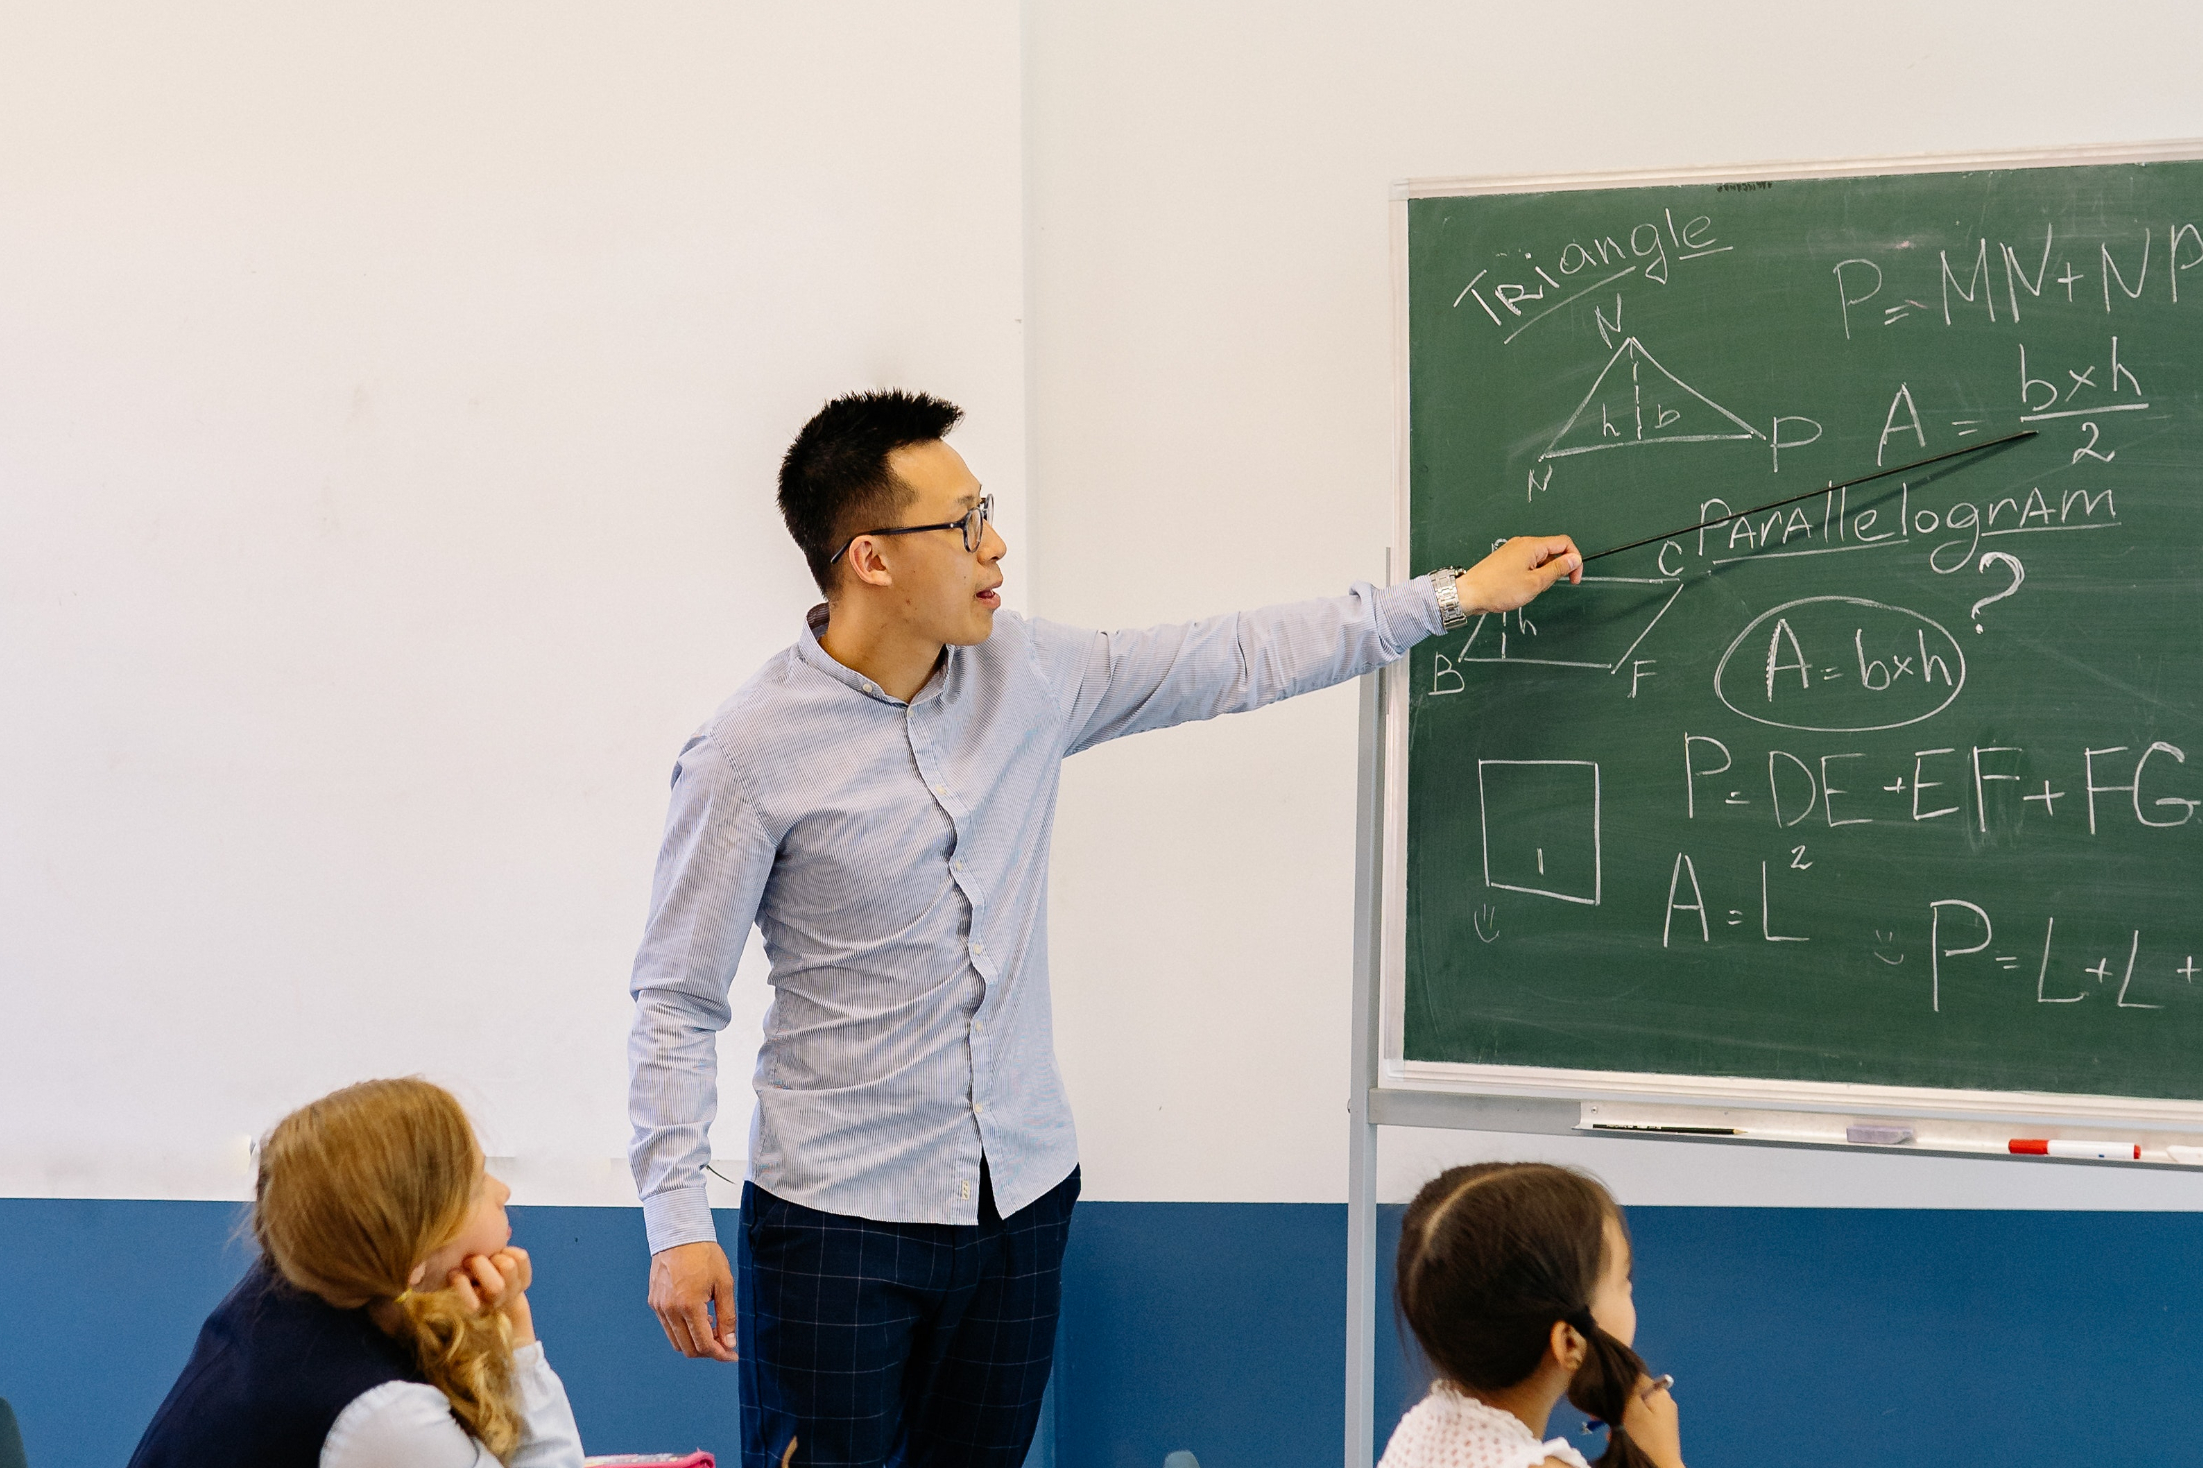 Triangle
P=MN+NP
N
h b
N
P
A = b×h/2
Parallelogram
?
C
h
B
F
A=b×h
P=DE+EF+FG
l
A=L²
P=L+L+